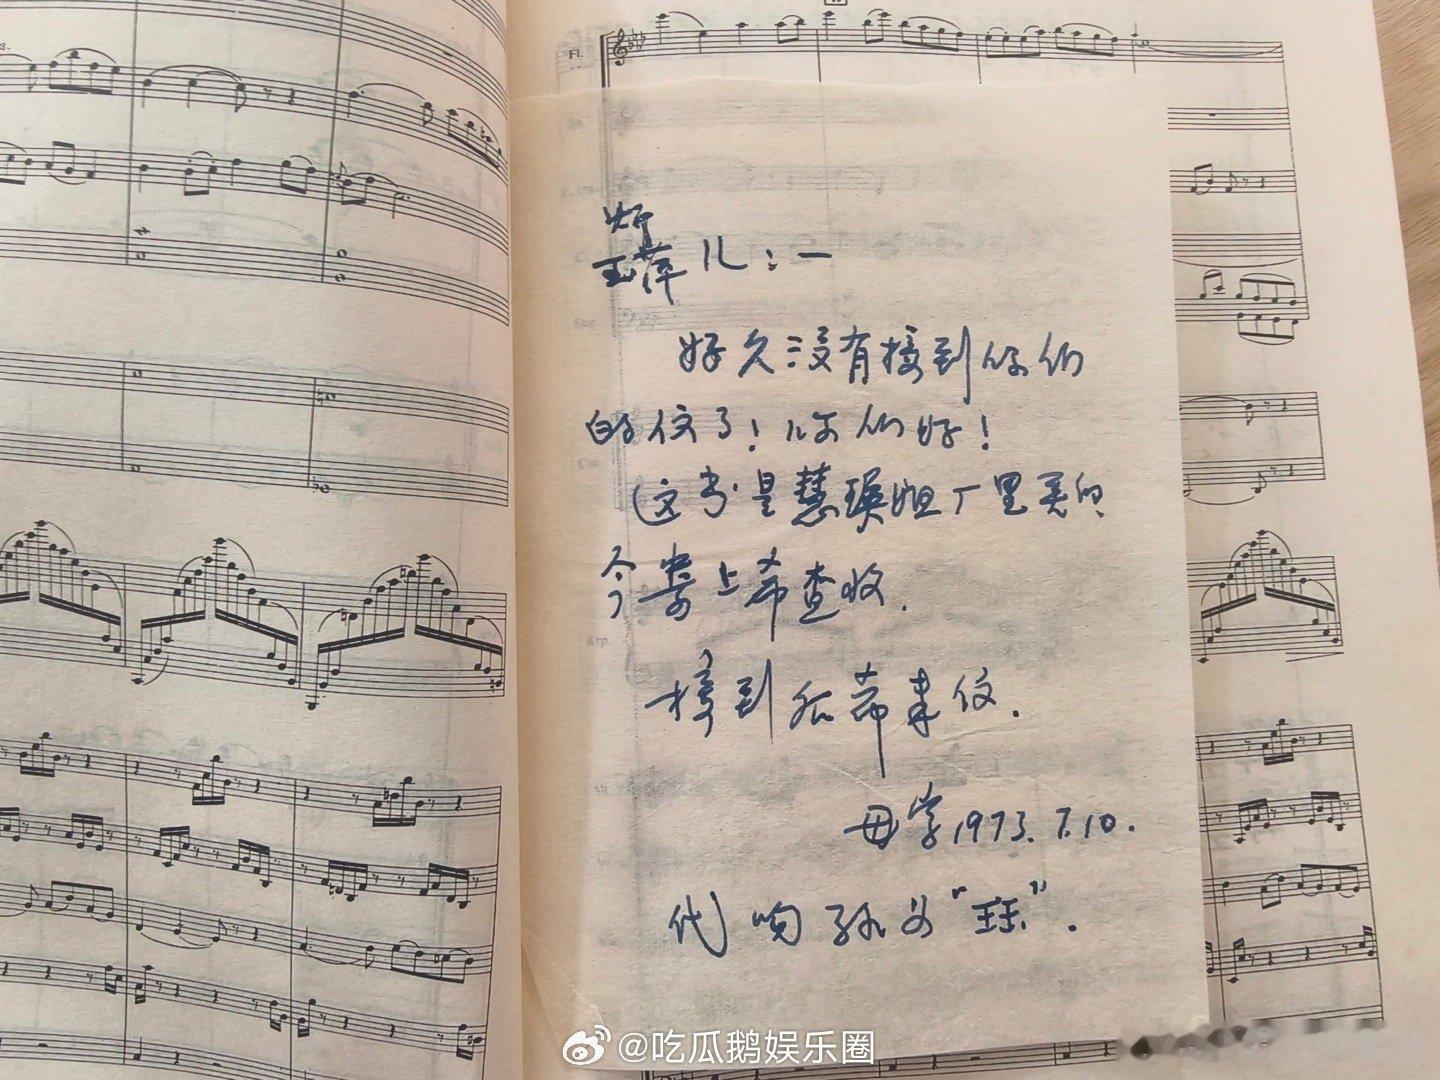 Fl.
炉
玉萍 儿:一
好久没有接到你们
的信了!你们好!
这书是慧瑛姐厂里弄的
今寄上希查收.
接到后希来信.
母字 1973.7.10.
代吻孙女"珏".
@吃瓜鹅娱乐圈